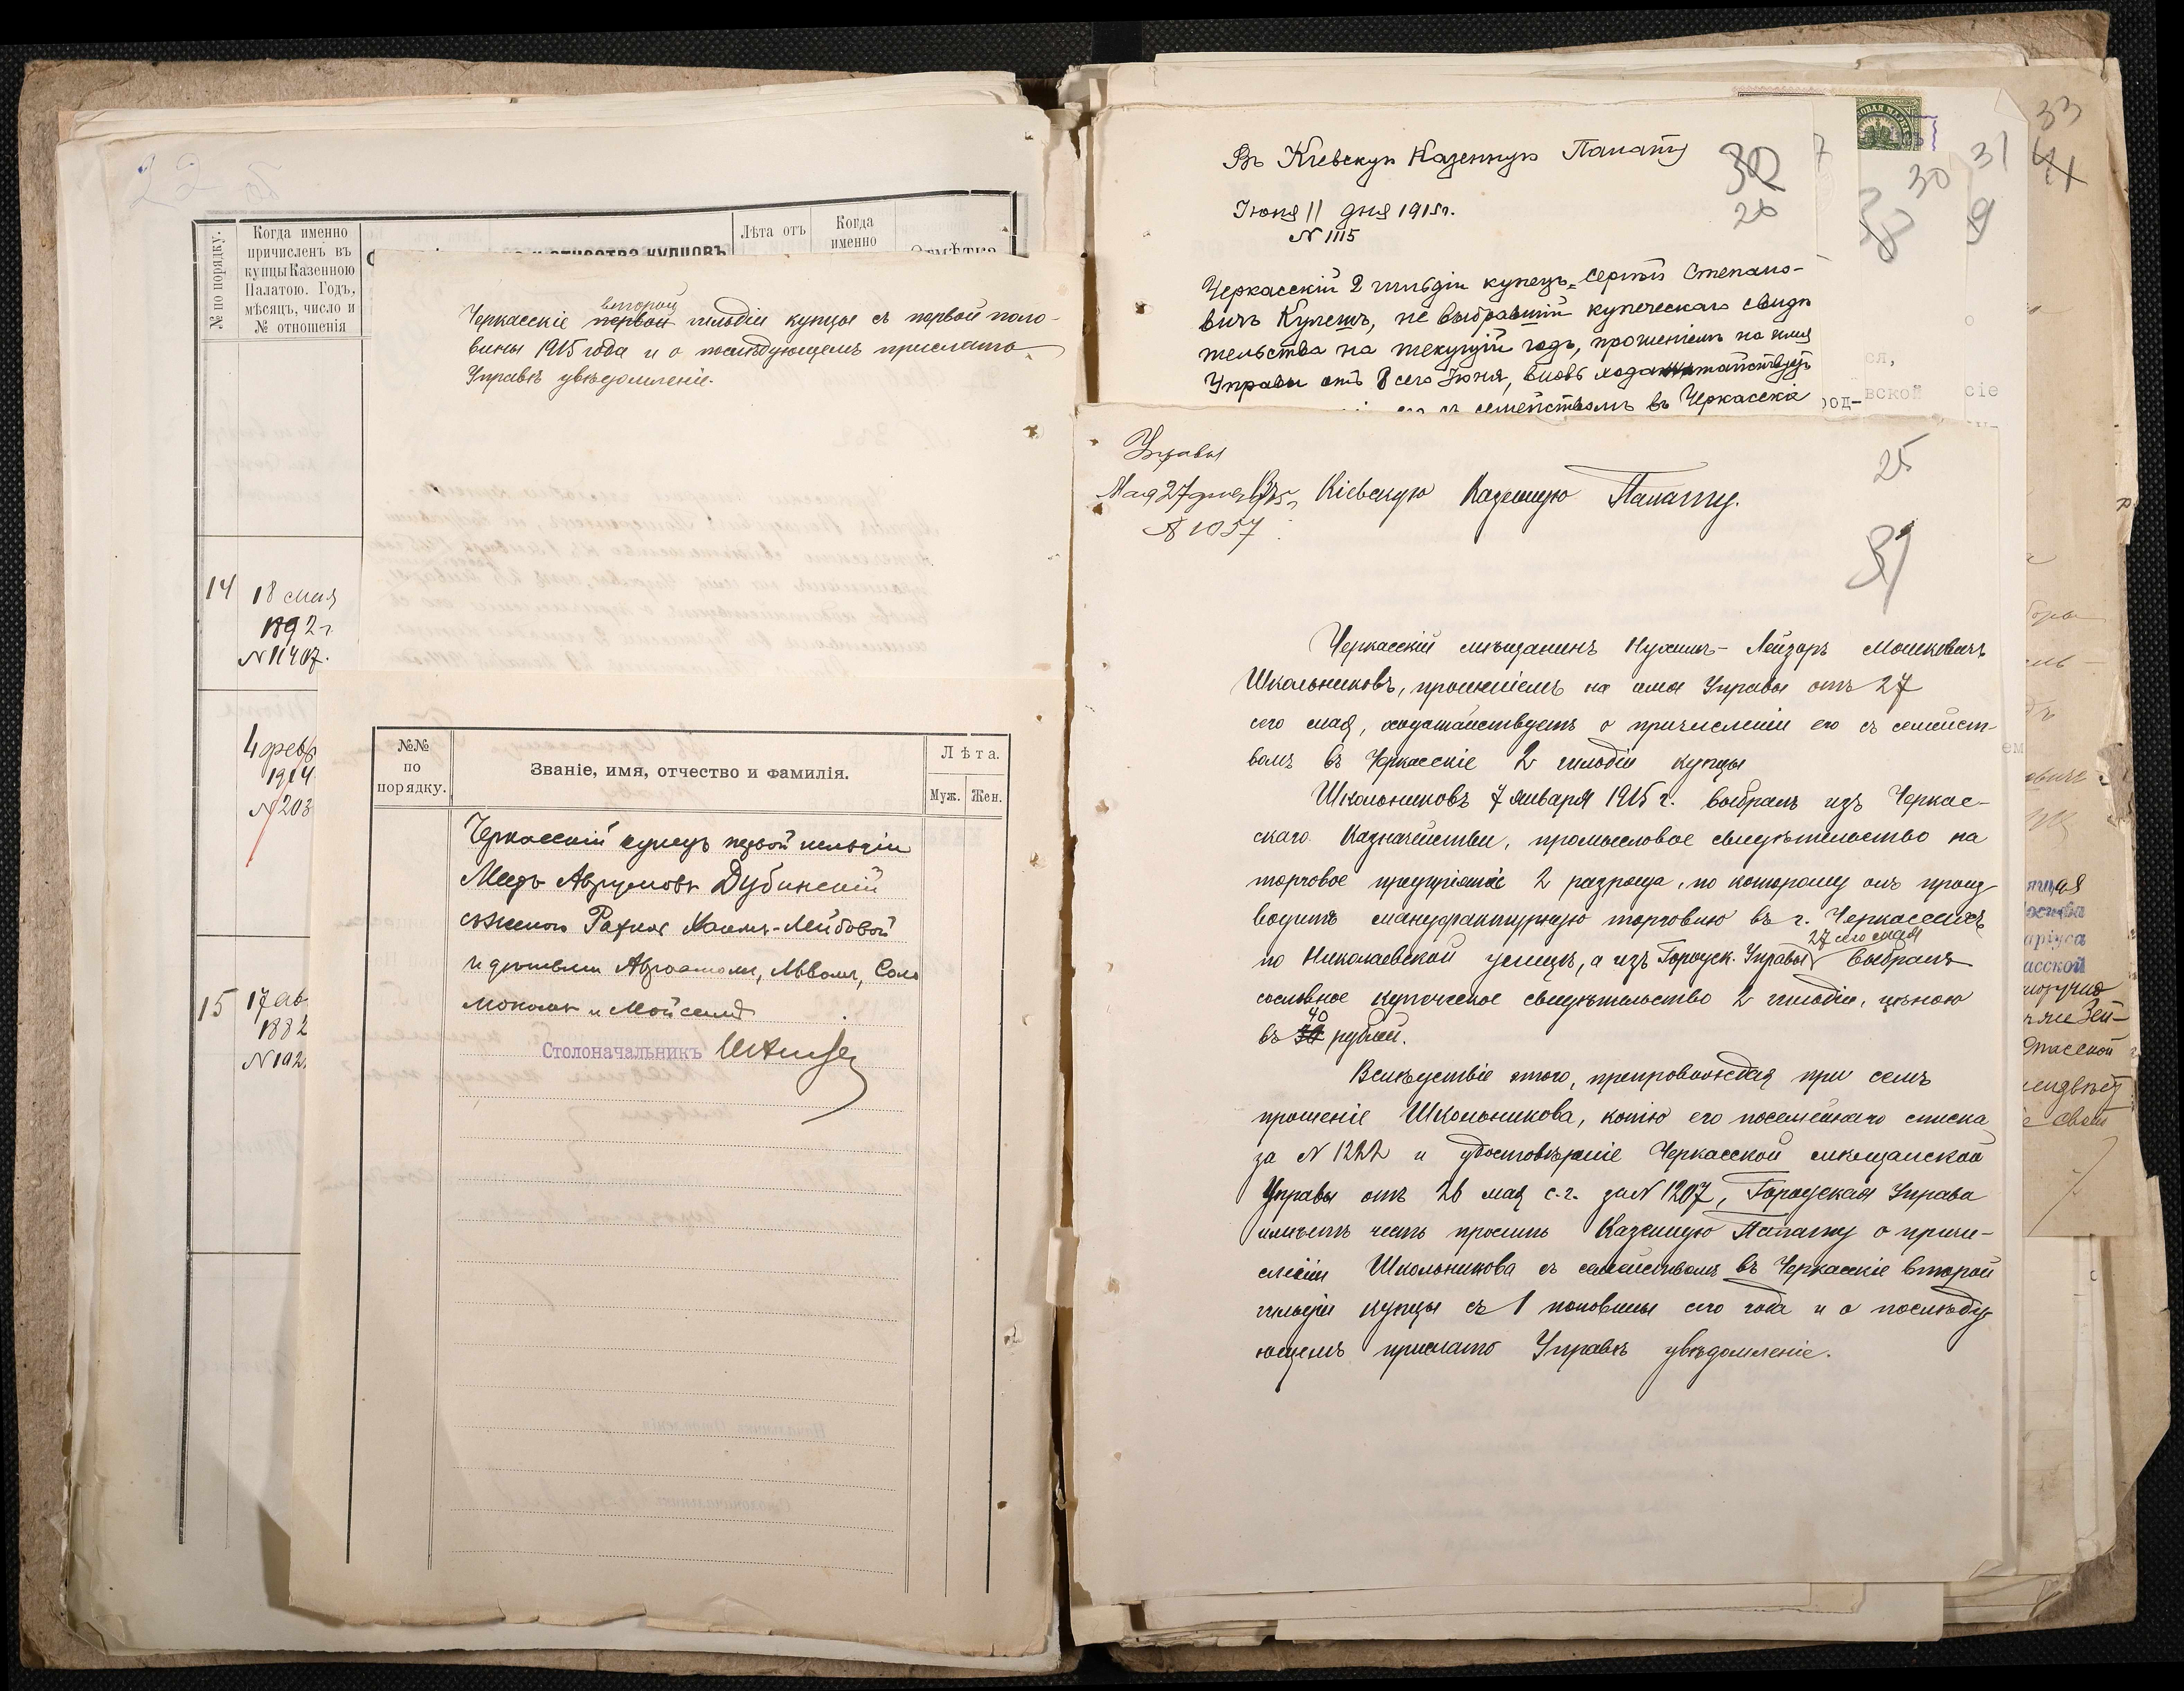 22 об
№ по порядку.
Когда именно
причисленъ въ
купцы Казенною
Палатою. Годъ,
мѣсяцъ, число и
№ отношенія
отчества купцовъ
Лѣта отъ
Когда
именно
14
18 мая
1892 г.
№ 11407.
4 февр
1914
№ 203
15
17 ав
1882
№ 192
второй
Черкасскіе первой гильдіи купцы съ первой поло-
вины 1915 года и о послѣдующемъ прислать
Управѣ увѣдомленіе.
№№
по
порядку.
Званіе, имя, отчество и фамилія.
Лѣта.
Муж.
Жен.
Черкасскій купецъ первой гильдіи
Мееръ Аврумовъ Дубинскій
съ женою Рахлею Хаимъ-Лейбовой
и дѣтьми Львомъ, Соло
мономъ и Мойсеемъ
Столоначальникъ
Въ Кіевскую Казенную Палату
30
20
Іюня 11 дня 1915 г.
№ 1115
Черкасскій 2 гильдіи купецъ Сергѣй Степано-
вичъ Кулешъ, не выбравшій купеческаго свидѣ
тельства на текущій годъ, прошеніемъ на имя
Управы отъ 8 сего Іюня, вновь ходатайствуетъ
его съ семействомъ въ Черкасскіе
7
30
31
9
33
41
ся,
вской
род-
сіе
Управы
Мая 27 дня 1915 г.
№ 1057
Въ Кіевскую Казенную Палату.
25
31
Черкасскій мѣщанинъ Нухимъ-Лейзоръ Мошковичъ
Школьниковъ, прошеніемъ на имя Управы отъ 27
сего мая, ходатайствуетъ о причисленіи его съ семейст-
вомъ въ Черкасскіе 2 гильдіи купцы
Школьниковъ 7 января 1915 г. выбралъ изъ Черкас-
скаго Казначейства, промысловое свидѣтельство на
торговое предпріятіе 2 разряда, по которому онъ произ
водитъ мануфактурную торговлю въ г. Черкассахъ
27 сего мая
по Николаевской улицѣ, а изъ Городск. Управы выбралъ
сословное купеческое свидѣтельство 2 гильдіи, цѣною
40
въ 30 рублей.
Вслѣдствіе этого, препровождая при семъ
прошеніе Школьникова, копію его посемейнаго списка
за № 1222 и удостовѣреніе Черкасской мѣщанской
Управы отъ 26 мая с.г. за № 1207, Городская Управа
имѣетъ честь просить Казенную Палату о причи-
сленіи Школьникова съ семействомъ въ Черкасскіе второй
гильдіи купцы съ 1 половины сего года и о послѣду-
ющемъ прислать Управѣ увѣдомленіе.
асской